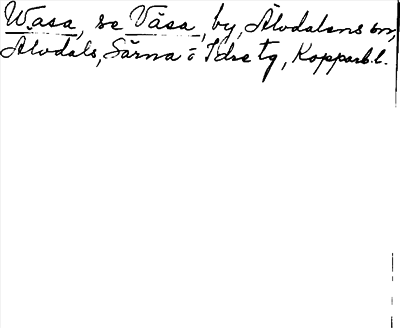 Wasa, se Våsa, by, Älvdalens sn,
Älvdals, Särna o Idre tg, Kopparb.l.